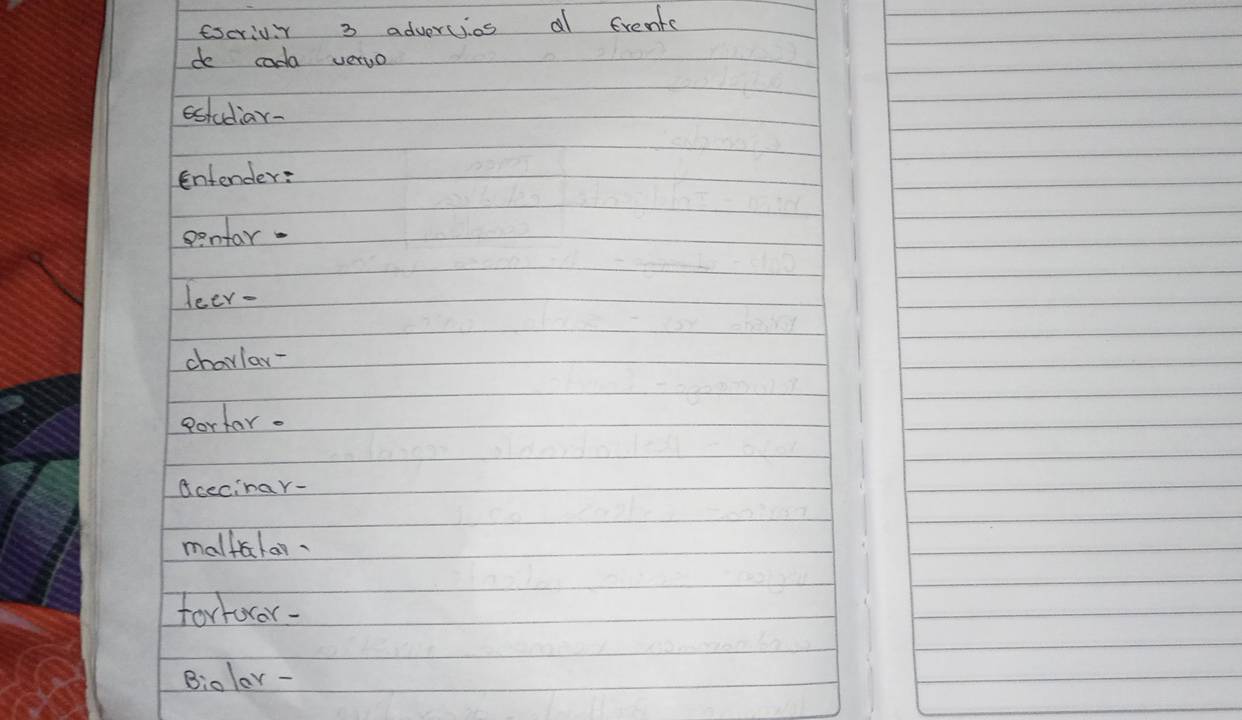 Escrivir 3 advervios al frente
de cada vervo
Estudiar-
Entender:
Pintar -
leer-
charlar-
Portar -
acecinar-
maltratar-
torturar-
Biolar-